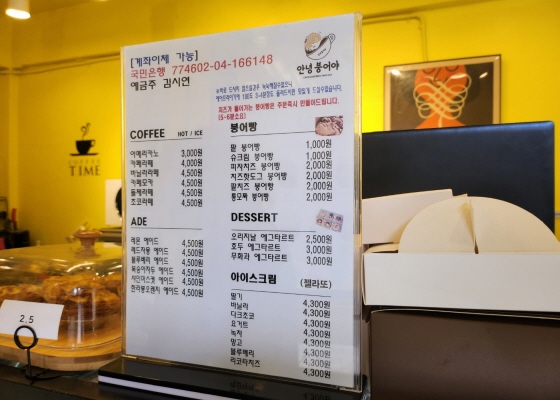 [계좌이체 가능]
국민은행 774602-04-166148
예금주 김시연
안녕 붕어야
치즈가 들어가는 붕어빵은 주문즉시 만들어드립니다.
(5-6분소요)
COFFEE HOT / ICE
아메리카노 3,000원
카페라떼 4,000원
바닐라라떼 4,500원
카페모카 4,500원
돌체라떼 4,500원
초코라떼 4,500원
ADE
레몬 에이드 4,500원
레드자몽 에이드 4,500원
블루베리 에이드 4,500원
복숭아자두 에이드 4,500원
샤인머스켓 에이드 4,500원
한라봉오렌지 에이드 4,500원
붕어빵
팥 붕어빵 1,000원
슈크림 붕어빵 1,000원
피자치즈 붕어빵 2,000원
치즈핫도그 붕어빵 2,000원
팥치즈 붕어빵 2,000원
통모짜 붕어빵 2,000원
DESSERT
오리지날 에그타르트 2,500원
호두 에그타르트 3,000원
무화과 에그타르트 3,000원
아이스크림 (젤라또)
딸기 4,300원
바닐라 4,300원
다크초코 4,300원
요거트 4,300원
녹차 4,300원
망고 4,300원
블루베리 4,300원
리코타치즈 4,300원
COFFEE
TIME
2.5